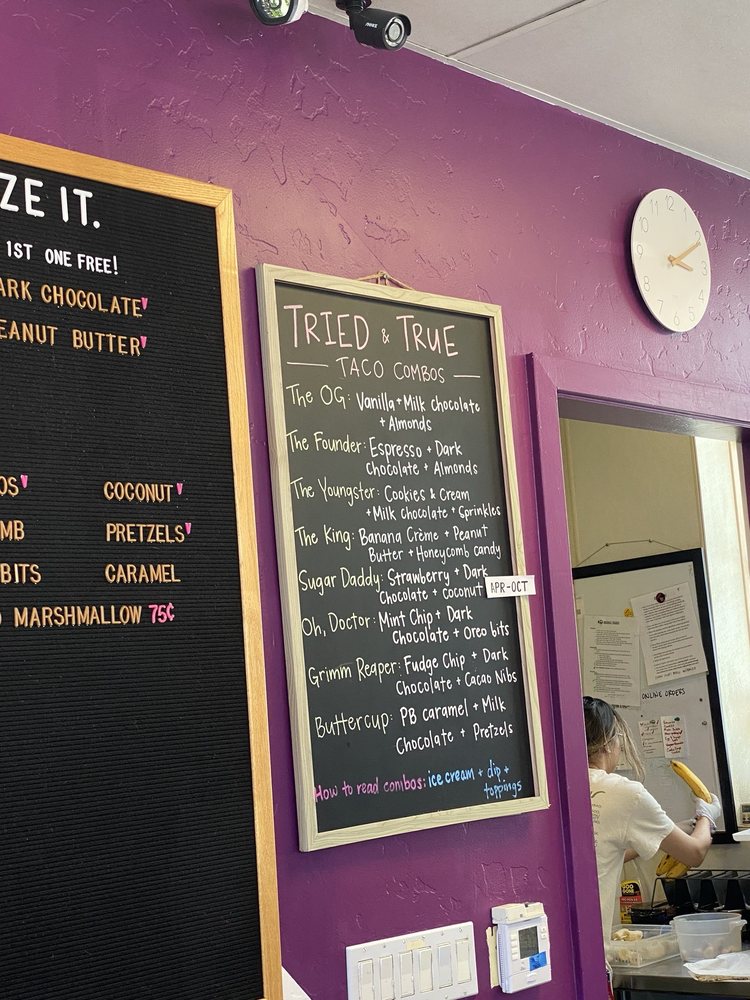 ZE IT.
1ST ONE FREE!
ARK CHOCOLATE
EANUT BUTTER
OS COCONUT
MB PRETZELS
BITS CARAMEL
MARSHMALLOW 75¢
TRIED & TRUE
TACO COMBOS
The OG: Vanilla + Milk Chocolate
+ Almonds
The Founder: Espresso + Dark
Chocolate + Almonds
The Youngster: Cookies & Cream
+ Milk Chocolate + Sprinkles
The King: Banana Crème + Peanut
Butter + Honeycomb candy
Sugar Daddy: Strawberry + Dark
Chocolate + coconut APR-OCT
Oh, Doctor: Mint Chip + Dark
Chocolate + Oreo bits
Grimm Reaper: Fudge Chip + Dark
Chocolate + Cacao Nibs
Buttercup: PB caramel + Milk
Chocolate + Pretzels
How to read combos: ice cream + dip +
toppings
12
1
2
3
4
5
6
7
8
9
10
11
ONLINE ORDERS